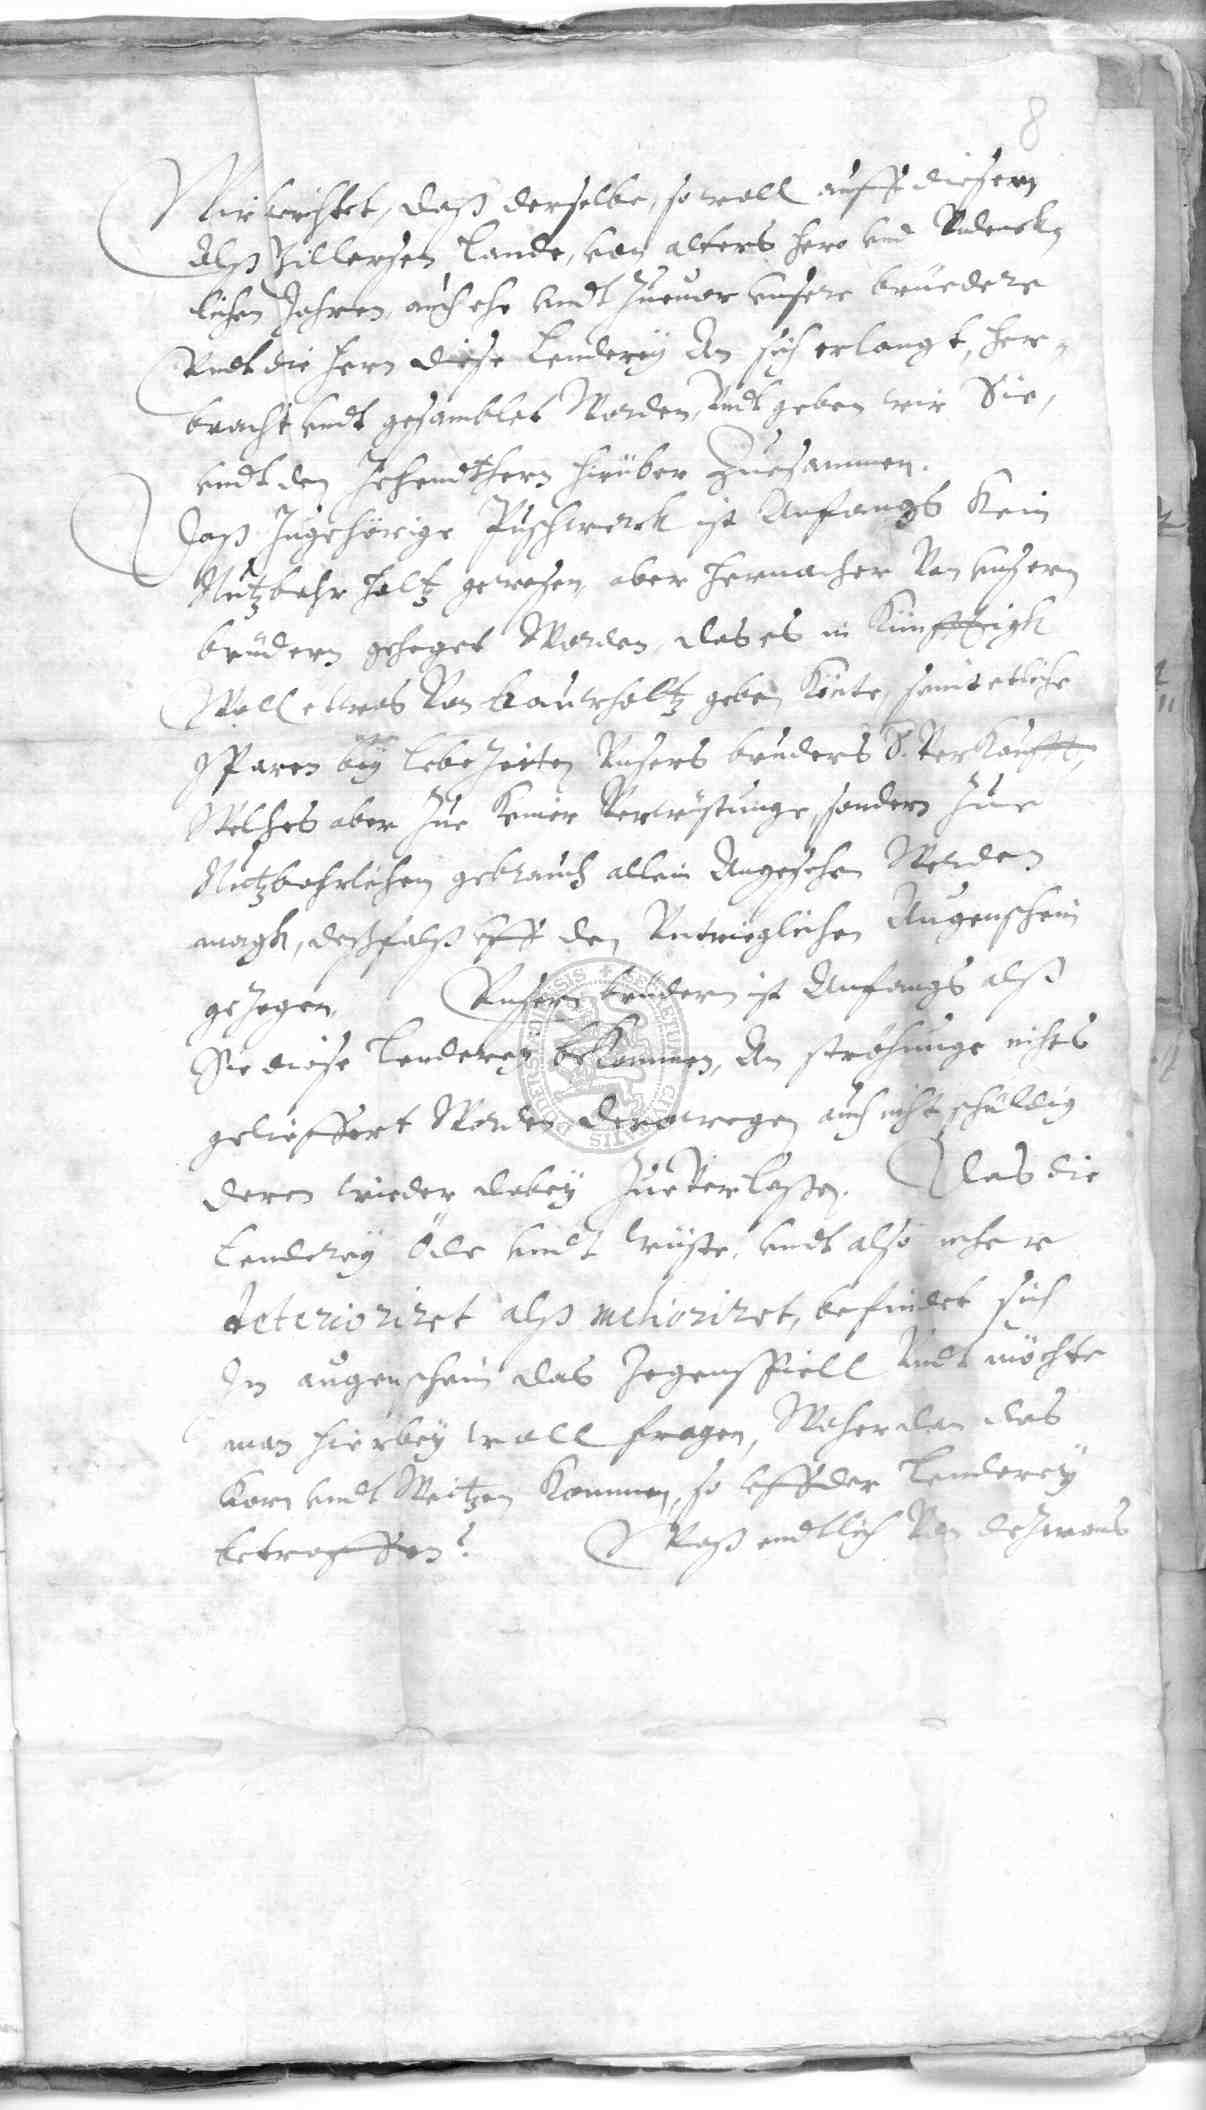 8
Wir berichtet, daß derselbe, so woll auff diesem
alß Hillersen Lande, von alters hero und Undenck¬
lichen Jahren, auch ehe undt Zuuor unsere brüedere
Undt die hern diese Lenderey An sich erlangt, her¬
bracht undt gesamblet Worden, Undt geben wir Sie,
undt den Zehendthern hirüber Zuesammen.
Daß Zugehörige Puschwerck ist Anfangs Kein
Nutzbahr holtz gewesen, aber hernacher Von unsern
brüdern geheget Worden, das es in Künfftigk
Woll etwas Von bauwholtz geben Könte, seint etliche
Sparen bey lebe Zeiten Unsers bruders S. Verkaufft,
Welches aber Zue Keiner Verwüstunge, sondern Zue
Nutzbahrlichen gebrauch allein Angesehen Werden
magh, deßfalß uff den Untrieglichen Augenschein
geZogen. Unsern brüdern ist Anfangs alß
Sie diese Lenderey bekommen, An ströhunge nichts
gelieffert Worden derowegen auch nicht schuldig
deren wieder dabey Zue Verlaßen. Das die
Lenderey Öde undt wüste, undt also mehre
deterioriret alß melioriret, befindet sich
In augenschein das Jegenspiell Undt möchte
man hierbey woll fragen, Woher dan das
Korn undt Weitzen Kommen, so uff der Lenderey
betroffen? Waß endtlich Von